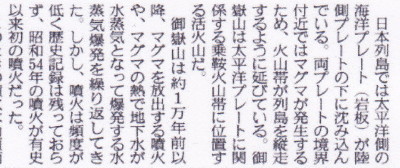 日本列島では太平洋側の
海洋プレート（岩板）が陸
側プレートの下に沈み込ん
でいる。両プレートの境界
付近ではマグマが発生する
ため、火山帯が列島を縦走
するように延びている。御
嶽山は太平洋プレートに関
係する乗鞍火山帯に位置す
る活火山だ。
御嶽山は約１万年前以
降、マグマを放出する噴火
や、マグマの熱で地下水が
水蒸気となって爆発する水
蒸気爆発を繰り返してき
た。しかし、噴火は頻度が
低く歴史記録は残っておら
ず、昭和54年の噴火が有史
以来初の噴火だった。